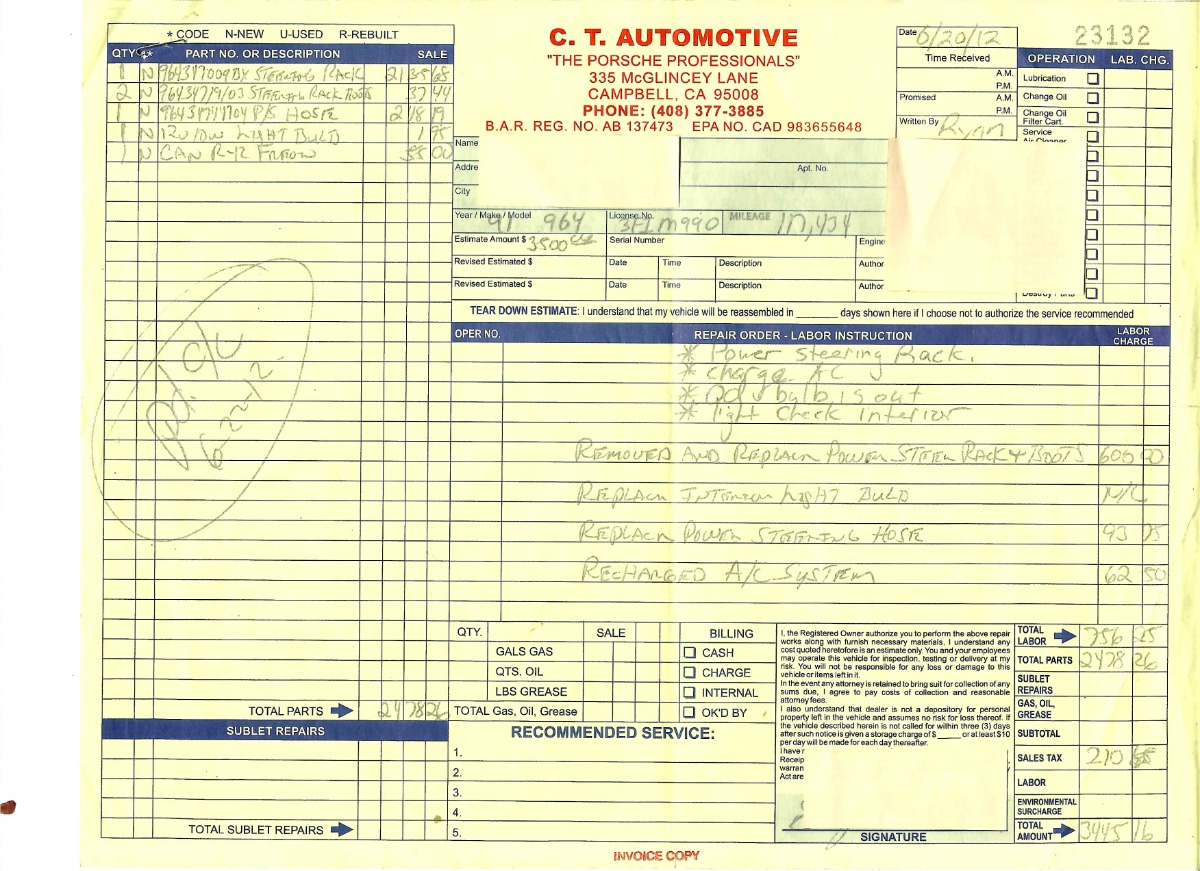 * CODE N-NEW U-USED R-REBUILT
QTY * PART NO. OR DESCRIPTION SALE
1 N STEERING RACK
2 N STEERING RACK BOOTS 37 44
1 N 96434744704 P/S HOSE 218 19
1 N 12V10W LIGHT BULB 1 95
1 N CAN R-12 FREON 55 00
Pd. C/C
6-22-12
TOTAL PARTS 2478 26
SUBLET REPAIRS
TOTAL SUBLET REPAIRS
C. T. AUTOMOTIVE
"THE PORSCHE PROFESSIONALS"
335 McGLINCEY LANE
CAMPBELL, CA 95008
PHONE: (408) 377-3885
B.A.R. REG. NO. AB 137473 EPA NO. CAD 983655648
Date 6/20/12
23132
Time Received
A.M.
P.M.
Promised A.M.
P.M.
Written By Ryan
OPERATION LAB. CHG.
Lubrication
Change Oil
Change Oil
Filter Cart.
Service
Air Cleaner
Name
Addre
Apt. No.
City
Year / Make / Model 91 964 License No. MILEAGE 117,434
Estimate Amount $ 3500 Serial Number Engine
Revised Estimated $ Date Time Description Author
Revised Estimated $ Date Time Description Author
TEAR DOWN ESTIMATE: I understand that my vehicle will be reassembled in ________ days shown here if I choose not to authorize the service recommended
OPER NO. REPAIR ORDER - LABOR INSTRUCTION LABOR
CHARGE
* Power Steering Rack.
* charge AC
* bulb is out
* light Check Interior
REMOVED AND REPLACE POWER STEER RACK + BOOTS 600 00
REPLACE INTERIOR LIGHT BULB N/C
REPLACE POWER STEERING HOSE 93 75
RECHARGED A/C SYSTEM 62 50
QTY. SALE BILLING
GALS GAS CASH
QTS. OIL CHARGE
LBS GREASE INTERNAL
TOTAL Gas, Oil, Grease OK'D BY
RECOMMENDED SERVICE:
1.
2.
3.
4.
5.
I, the Registered Owner authorize you to perform the above repair
works along with furnish necessary materials. I understand any
cost quoted heretofore is an estimate only. You and your employees
may operate this vehicle for inspection, testing or delivery at my
risk. You will not be responsible for any loss or damage to this
vehicle or items left in it.
In the event any attorney is retained to bring suit for collection of any
sums due, I agree to pay costs of collection and reasonable
attorney fees.
I also understand that dealer is not a depository for personal
property left in the vehicle and assumes no risk for loss thereof. If
the vehicle described herein is not called for within three (3) days
after such notice is given a storage charge of $ _____ or at least $10
per day will be made for each day thereafter.
I have r
Receip
warran
Act are
SIGNATURE
TOTAL
LABOR 756 25
TOTAL PARTS 2478 26
SUBLET
REPAIRS
GAS, OIL,
GREASE
SUBTOTAL
SALES TAX 210 65
LABOR
ENVIRONMENTAL
SURCHARGE
TOTAL
AMOUNT 3445 16
INVOICE COPY